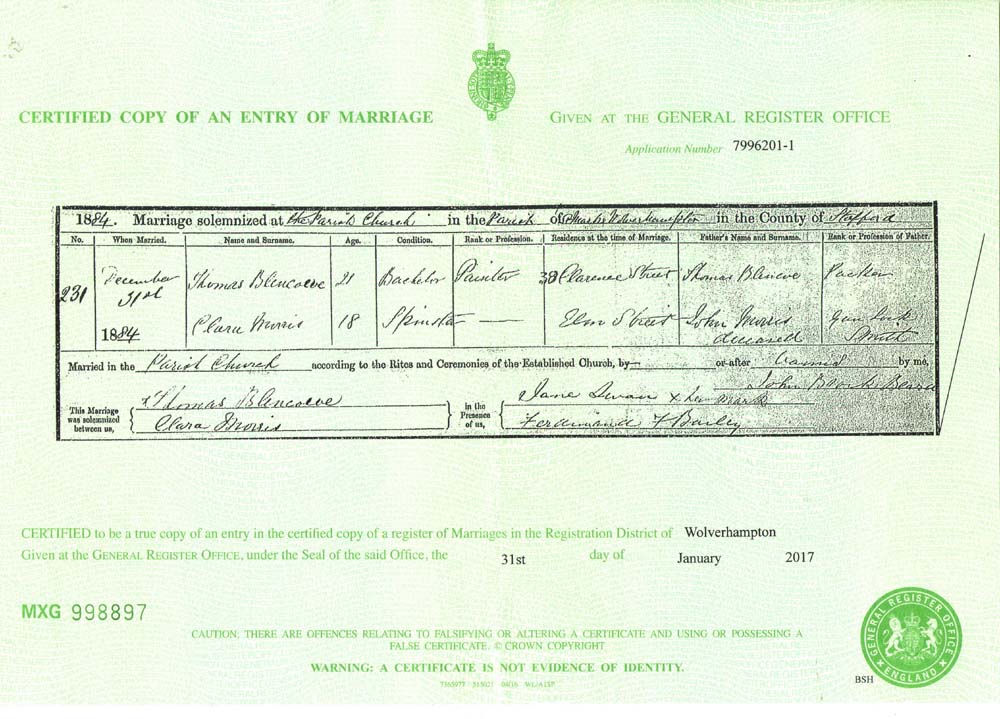 CERTIFIED COPY OF AN ENTRY OF MARRIAGE
GIVEN AT THE GENERAL REGISTER OFFICE
Application Number 7996201-1
1884. Marriage solemnized at the Parish Church in the Parish of St Mark's Wolverhampton in the County of Stafford
No. When Married. Name and Surname. Age. Condition. Rank or Profession. Residence at the time of Marriage. Father's Name and Surname. Rank or Profession of Father.
231 December 31st 1884 Thomas Blencowe 21 Bachelor Painter 38 Clarence Street Thomas Blincowe Packer
Clara Morris 18 Spinster — Elm Street John Morris deceased Gun Lock Smith
Married in the Parish Church according to the Rites and Ceremonies of the Established Church, by — or after Banns by me,
John
This Marriage was solemnized between us, Thomas Blencowe Clara Morris in the Presence of us, Jane Swan x her mark Ferdinand F Bailey
CERTIFIED to be a true copy of an entry in the certified copy of a register of Marriages in the Registration District of Wolverhampton
Given at the GENERAL REGISTER OFFICE, under the Seal of the said Office, the 31st day of January 2017
MXG 998897
CAUTION: THERE ARE OFFENCES RELATING TO FALSIFYING OR ALTERING A CERTIFICATE AND USING OR POSSESSING A
FALSE CERTIFICATE. © CROWN COPYRIGHT
WARNING: A CERTIFICATE IS NOT EVIDENCE OF IDENTITY.
GENERAL REGISTER OFFICE
ENGLAND
BSH